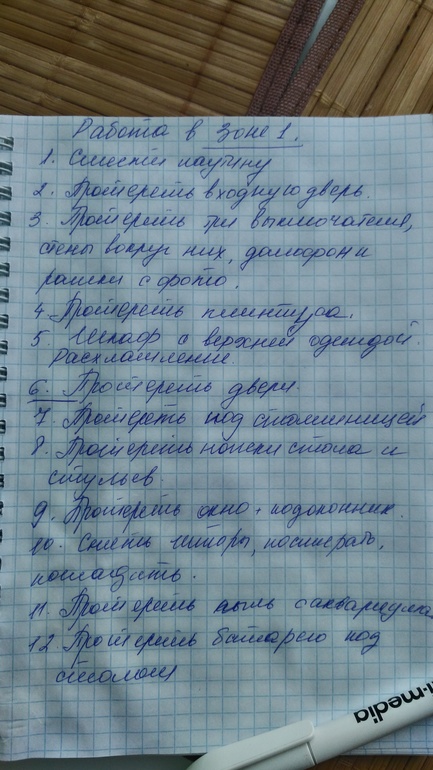 Работа в Зоне 1.
1. Смести паутину
2. Протереть входную дверь.
3. Протереть три выключателя,
стены вокруг них, домофон и
рамки с фото.
4. Протереть плинтуса.
5. Шкаф с верхней одеждой.
Расхламление.
6. Протереть двери.
7. Протереть под столешницей
8. Протереть ножки стола и
стульев.
9. Протереть окно + подоконник.
10. Снять шторы, постирать,
погладить.
11. Протереть пыль с аквариума.
12. Протереть батарею под
столом
-media